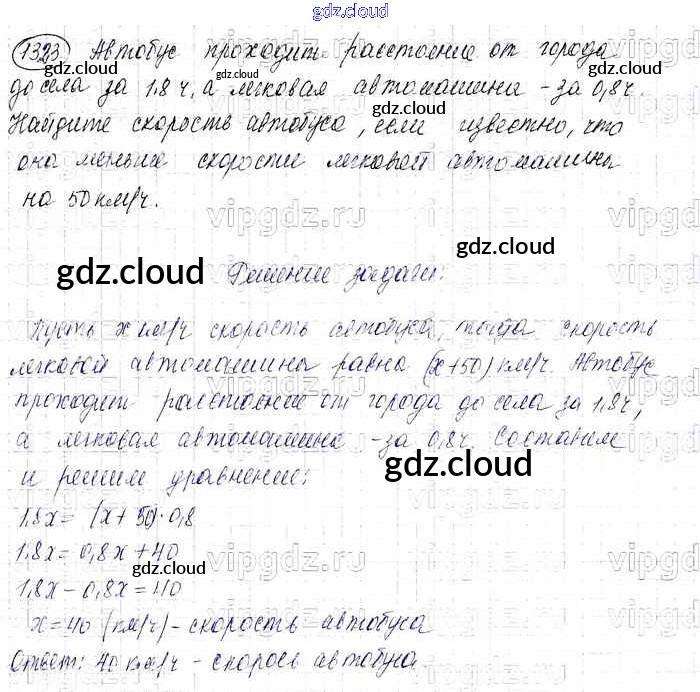 gdz.cloud
1323 Автобус проходит расстояние от города
до села за 1.8 ч, а легковая автомашина - за 0,8 ч.
Найдите скорость автобуса, если известно, что
она меньше скорости легковой автомашины
на 50 км/ч.
Решение задачи:
Пусть x км/ч скорость автобуса, тогда скорость
легковой автомашины равна (x+50) км/ч. Автобус
проходит расстояние от города до села за 1,8 ч,
а легковая автомашина - за 0,8 ч. Составим
и решим уравнение:
1,8x = (x + 50)·0,8
1.8x = 0,8x + 40
1,8x - 0,8x = 40
x = 40 (км/ч) - скорость автобуса
Ответ: 40 км/ч - скорось автобуса.
gdz.cloud
gdz.cloud
gdz.cloud
gdz.cloud
gdz.cloud
gdz.cloud
gdz.cloud
gdz.cloud
gdz.cloud
vipgdz.ru